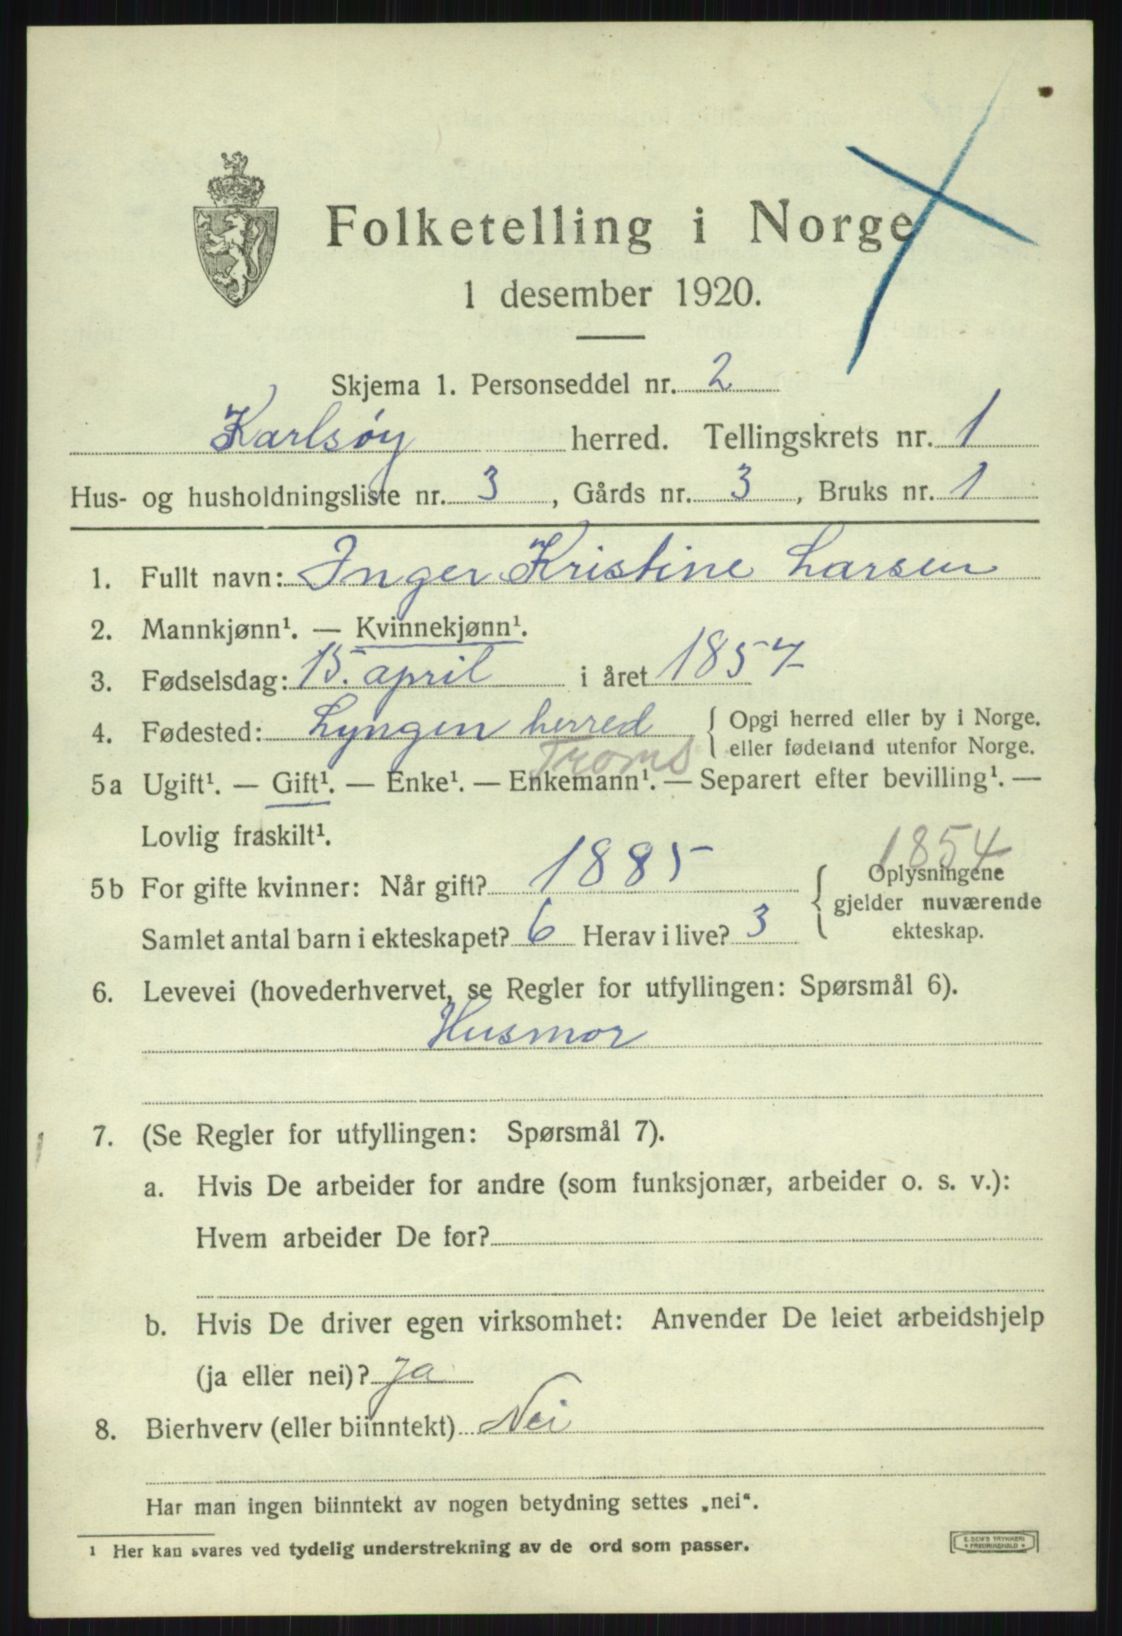 Folketelling i Norge
1 desember 1920.
Skjema 1. Personseddel nr. 2
Karlsøy herred. Tellingskrets nr. 1
Hus- og husholdningsliste nr. 3, Gårds nr. 3, Bruks nr. 1
1. Fullt navn: Inger Kristine Larsen
2. Mannkjønn¹. — Kvinnekjønn¹.
3. Fødselsdag: 15. april i året 1854
4. Fødested: Lyngen herred { Opgi herred eller by i Norge.
Troms eller fødeland utenfor Norge.
5a Ugift¹. — Gift¹. — Enke¹. — Enkemann¹. — Separert efter bevilling¹. —
Lovlig fraskilt¹.
1854
5b For gifte kvinner: Når gift? 1885 { Oplysningene
gjelder nuværende
Samlet antal barn i ekteskapet? 6 Herav i live? 3 ekteskap.
6. Levevei (hovederhvervet, se Regler for utfyllingen: Spørsmål 6).
Husmor
7. (Se Regler for utfyllingen: Spørsmål 7).
a. Hvis De arbeider for andre (som funksjonær, arbeider o. s. v.):
Hvem arbeider De for?
b. Hvis De driver egen virksomhet: Anvender De leiet arbeidshjelp
(ja eller nei)? ja
8. Bierhverv (eller biinntekt) Nei
Har man ingen biinntekt av nogen betydning settes „nei“.
¹ Her kan svares ved tydelig understrekning av de ord som passer.